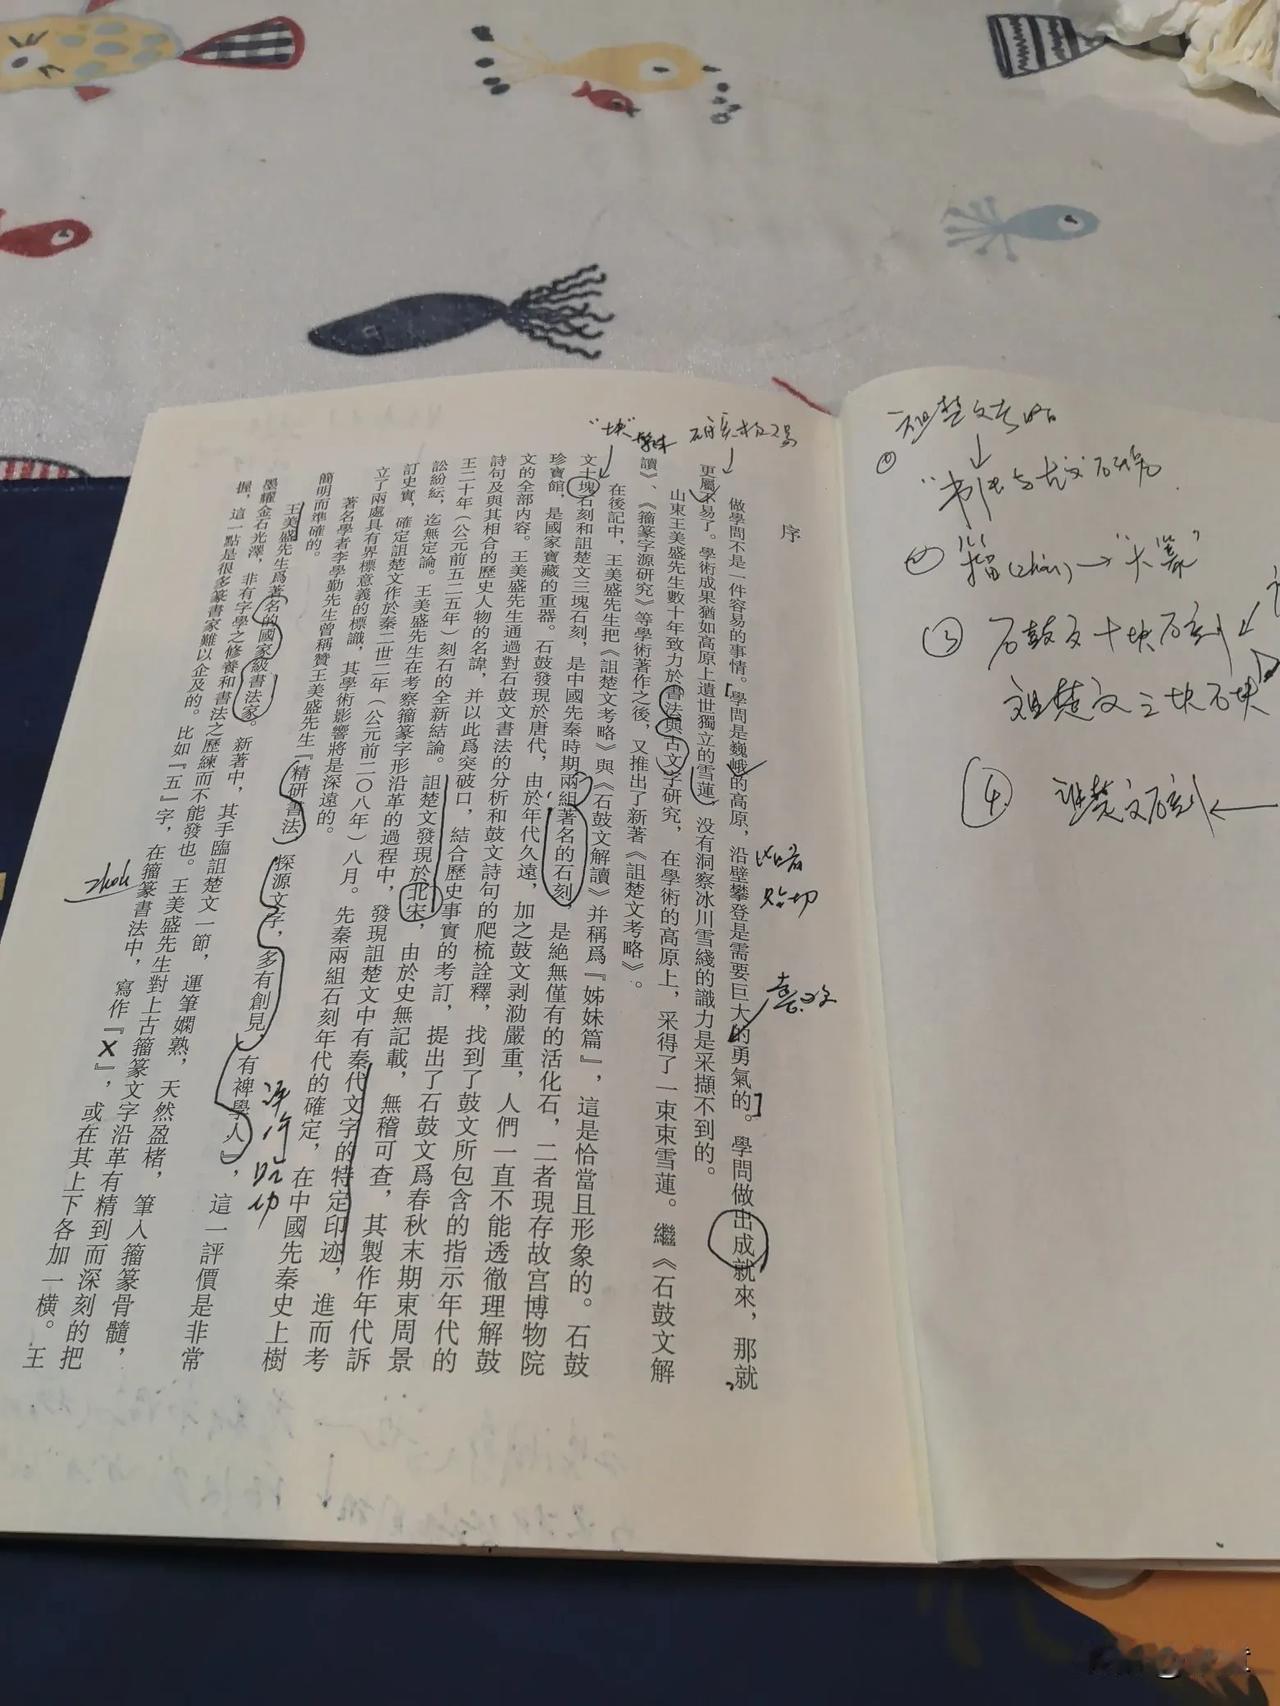 序
做學問不是一件容易的事情。學問是巍峨的高原，沿壁攀登是需要巨大的勇氣的。學問做出成就來，那就
更屬不易了。學術成果猶如高原上遺世獨立的雪蓮，没有洞察冰川雪綫的識力是采擷不到的。
山東王美盛先生數十年致力於書法與古文字研究，在學術的高原上，采得了一束束雪蓮。繼《石鼓文解
讀》、《籀篆字源研究》等學術著作之後，又推出了新著《詛楚文考略》。
在後記中，王美盛先生把《詛楚文考略》與《石鼓文解讀》并稱爲『姊妹篇』，這是恰當且形象的。石鼓
文十塊石刻和詛楚文三塊石刻，是中國先秦時期兩組著名的石刻，是絶無僅有的活化石，二者現存故宫博物院
珍寶館，是國家寶藏的重器。石鼓發現於唐代，由於年代久遠，加之鼓文剥泐嚴重，人們一直不能透徹理解鼓
文的全部内容。王美盛先生通過對石鼓文書法的分析和鼓文詩句的爬梳詮釋，找到了鼓文所包含的指示年代的
詩句及與其相合的歷史人物的名諱，并以此爲突破口，結合歷史事實的考訂，提出了石鼓文爲春秋末期東周景
王二十年（公元前五二五年）刻石的全新結論。詛楚文發現於北宋，由於史無記載，無稽可查，其製作年代訴
訟紛紜，迄無定論。王美盛先生在考察籀篆字形沿革的過程中，發現詛楚文中有秦代文字的特定印迹，進而考
訂史實，確定詛楚文作於秦二世二年（公元前二〇八年）八月。先秦兩組石刻年代的確定，在中國先秦史上樹
立了兩處具有界標意義的標識，其學術影響將是深遠的。
著名學者李學勤先生曾稱贊王美盛先生『精研書法，探源文字，多有創見，有裨學人』，這一評價是非常
簡明而準確的。
王美盛先生爲著名的國家級書法家。新著中，其手臨詛楚文一節，運筆嫻熟，天然盈楮，筆入籀篆骨髓，
墨耀金石光澤，非有字學之修養和書法之歷練而不能發也。王美盛先生對上古籀篆文字沿革有精到而深刻的把
握，這一點是很多篆書家難以企及的。比如『五』字，在籀篆書法中，寫作『X』，或在其上下各加一橫。王
"块"
比喻
贴切
评价
②籀(zhòu)→"大篆"
③石鼓文十块石刻
詛楚文三块石块
④詛楚文石刻